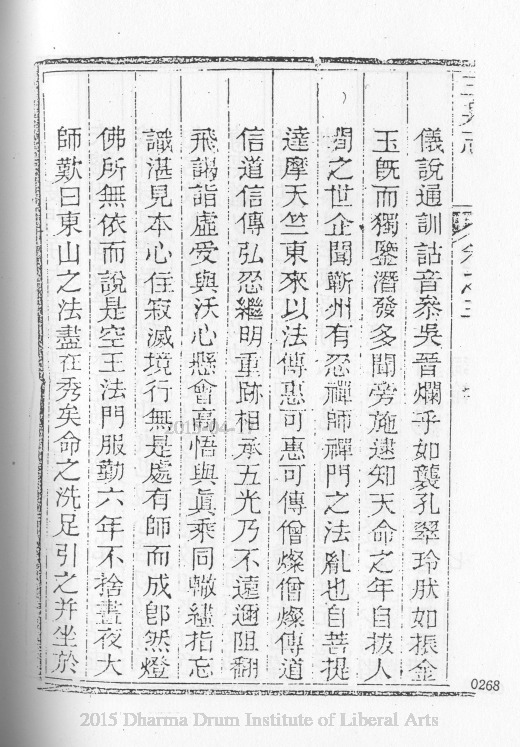 儀說通訓詁音參吳晉爛乎如襲孔翠玲肰如振金
玉旣而獨鑒潛發多聞旁施逮知天命之年自拔人
間之世企聞蘄州有忍禪師禪門之法亂也自菩提
達摩天竺東來以法傳惠可惠可傳僧燦僧燦傳道
信道信傳弘忍繼明重跡相承五光乃不遠邇阻翻
飛謁詣虛受與沃心懸會高悟與眞乘同轍繾指忘
識湛見本心住寂滅境行無是處有師而成卽然燈
佛所無依而說是空王法門服勤六年不捨晝夜大
師歎曰東山之法盡在秀矣命之洗足引之并坐於
0268
2015 Dharma Drum Institute of Liberal Arts